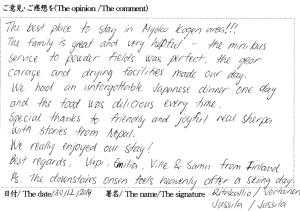 ご意見・ご感想を(The opinion /The comment)
The best place to stay in Myoko Kogen area!!!
The family is great and very helpful - the minibus
service to powder fields was perfect, the gear
garage and drying facilities made our day.
We had an unforgottable Japanese dinner one day
and the food was delicious every time.
Special thanks to friendly and joyful real sherpa
with stories from Nepal.
We really enjoyed our stay!
Best regards, Virpi, Emilia, Ville & Samu from Finland
Ps. The downstairs onsen feels heavenly after a skiing day.
日付/ The date/30/12/2014 署名/ The name/The signature Ritakallio / Vertanen
Jussila / Jussila